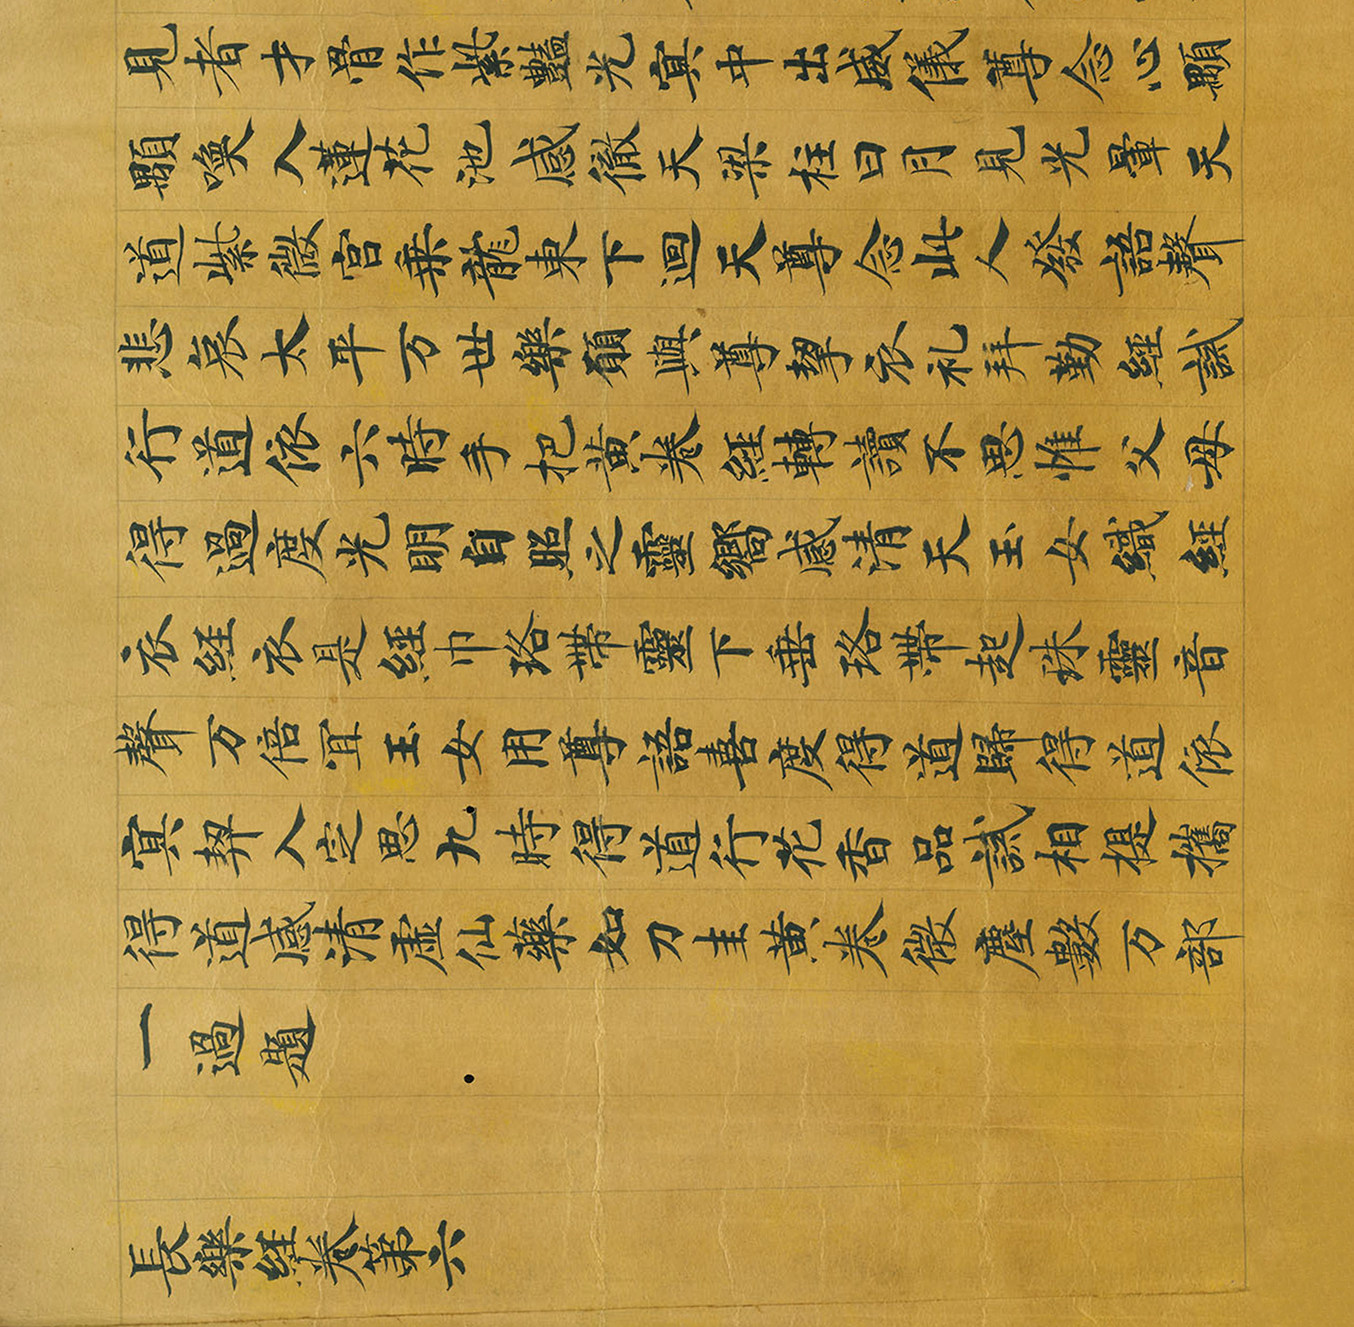 見者才骨作紫艷光冥中出威儀尊念心顯
顯喚入蓮花池感徹天梁柱日月見光暈天
道紫微宮乘龍東下迴天尊念此人發語聲
悲哀太平万世樂願與尊挈衣礼拜勤經試
行道依六時手把黃卷經轉讀不思惟父母
得過度光明自照之靈嚮感清天玉女織經
衣經衣是經巾珞帶靈下垂珞帶起珠靈音
聲万倍宜玉女用尊語善度得道歸得道依
冥契入定思九時得道行花香品試相提攜
得道感清虛仙樂如刀圭黃卷微塵數万部
一過題
長樂經卷第六